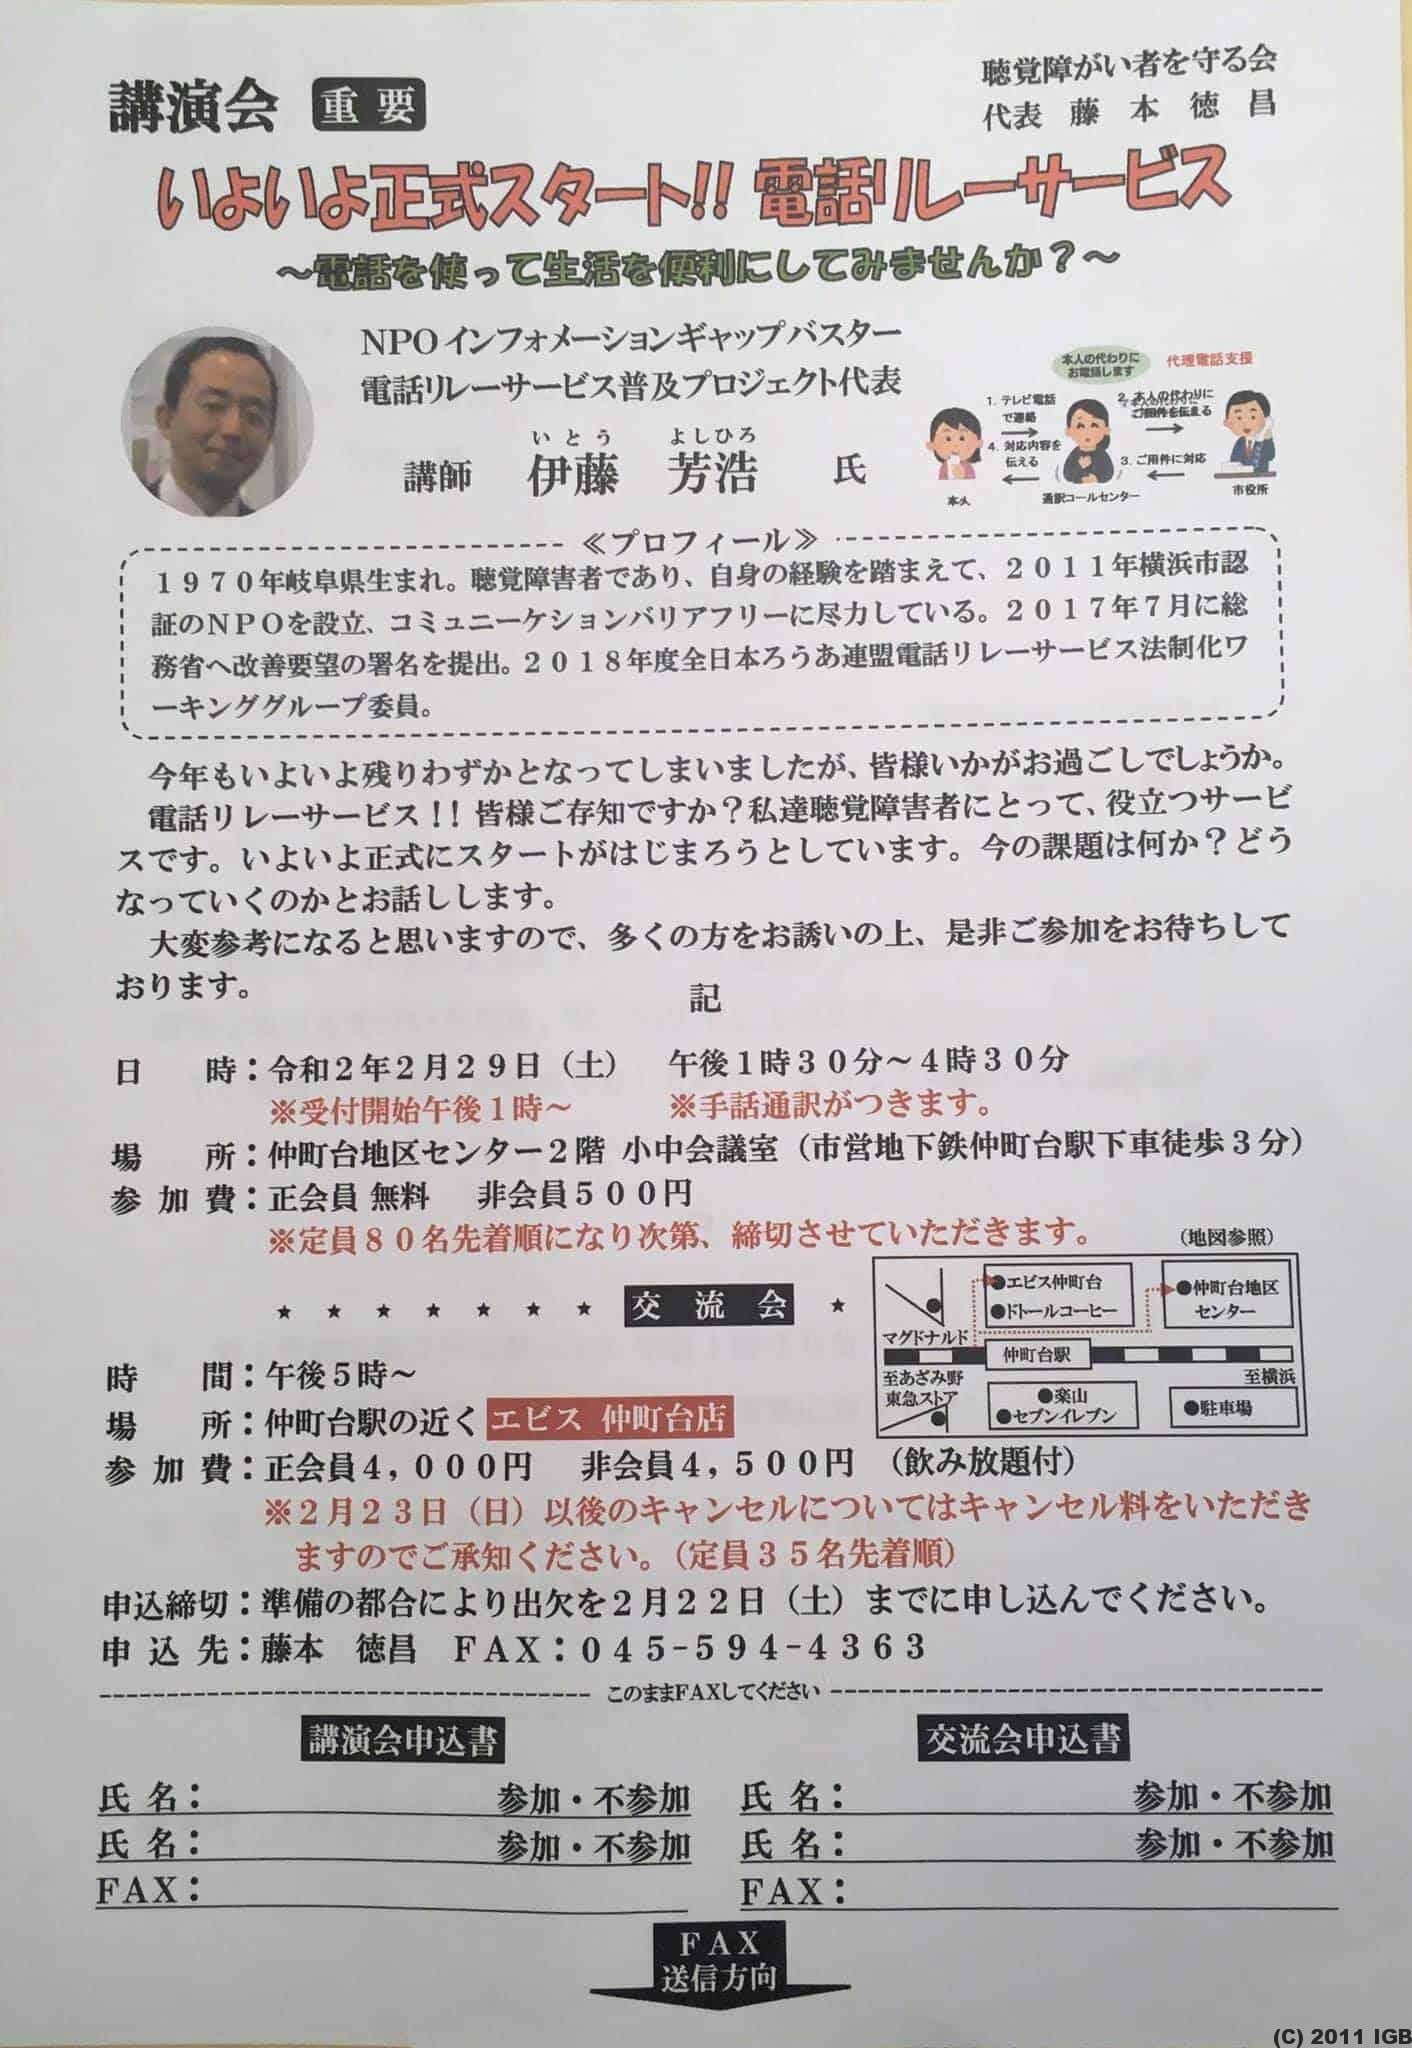 聴覚障がい者を守る会
講演会 重要
代表 藤本徳昌
いよいよ正式スタート!! 電話リレーサービス
～電話を使って生活を便利にしてみませんか？～
NPOインフォメーションギャップバスター
電話リレーサービス普及プロジェクト代表
いとう よしひろ
講師 伊藤 芳浩 氏
本人の代わりに
お電話します
代理電話支援
1. テレビ電話
で連絡
2. 本人の代わりに
ご用件を伝える
4. 対応内容を
伝える
3. ご用件に対応
本人
通訳コールセンター
市役所
≪プロフィール≫
１９７０年岐阜県生まれ。聴覚障害者であり、自身の経験を踏まえて、２０１１年横浜市認
証のＮＰＯを設立、コミュニーケションバリアフリーに尽力している。２０１７年７月に総
務省へ改善要望の署名を提出。２０１８年度全日本ろうあ連盟電話リレーサービス法制化ワ
ーキンググループ委員。
今年もいよいよ残りわずかとなってしまいましたが、皆様いかがお過ごしでしょうか。
電話リレーサービス！！皆様ご存知ですか？私達聴覚障害者にとって、役立つサービ
スです。いよいよ正式にスタートがはじまろうとしています。今の課題は何か？どう
なっていくのかとお話しします。
大変参考になると思いますので、多くの方をお誘いの上、是非ご参加をお待ちして
おります。
記
日 時：令和２年２月２９日（土） 午後１時３０分～４時３０分
※受付開始午後１時～ ※手話通訳がつきます。
場 所：仲町台地区センター２階 小中会議室（市営地下鉄仲町台駅下車徒歩３分）
参加費：正会員 無料 非会員５００円
※定員８０名先着順になり次第、締切させていただきます。
（地図参照）
★ ★ ★ ★ ★ ★ ★ 交流会 ★
●エビス仲町台
●ドトールコーヒー
●仲町台地区
センター
マグドナルド
仲町台駅
至あざみ野
至横浜
東急ストア
●楽山
●セブンイレブン
●駐車場
時 間：午後５時～
場 所：仲町台駅の近く エビス 仲町台店
参加費：正会員４，０００円 非会員４，５００円 （飲み放題付）
※２月２３日（日）以後のキャンセルについてはキャンセル料をいただき
ますのでご承知ください。（定員３５名先着順）
申込締切：準備の都合により出欠を２月２２日（土）までに申し込んでください。
申込先：藤本 徳昌 ＦＡＸ：０４５－５９４－４３６３
このままFAXしてください
講演会申込書
交流会申込書
氏名： 参加・不参加 氏名： 参加・不参加
氏名： 参加・不参加 氏名： 参加・不参加
FAX： FAX：
ＦＡＸ
送信方向
(C) 2011 IGB